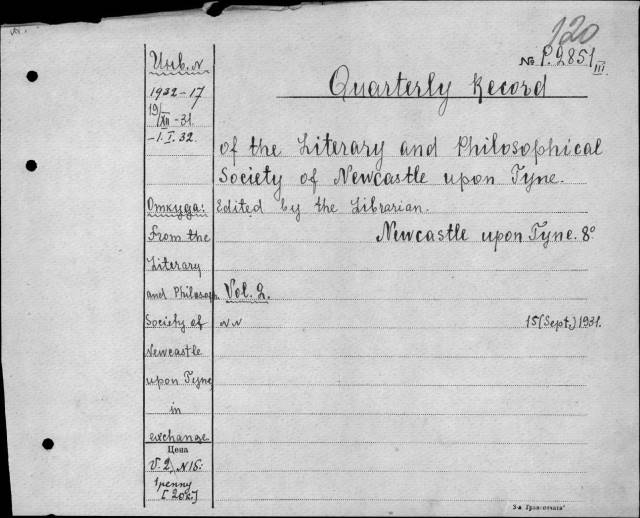 120
№ P.2851 III
Quarterly Record
of the Literary and Philosophical
Society of Newcastle upon Tyne.
Edited by the Librarian.
Newcastle upon Tyne. 8°
Vol. 2.
NN 15 (Sept.) 1931.
Инв. N
1932-17
19/XII-31.
-1.I.32.
Откуда:
From the
Literary
and Philosoph.
Society of
Newcastle
upon Tyne
in
exchange
Цена
V.2, N15:
1 penny